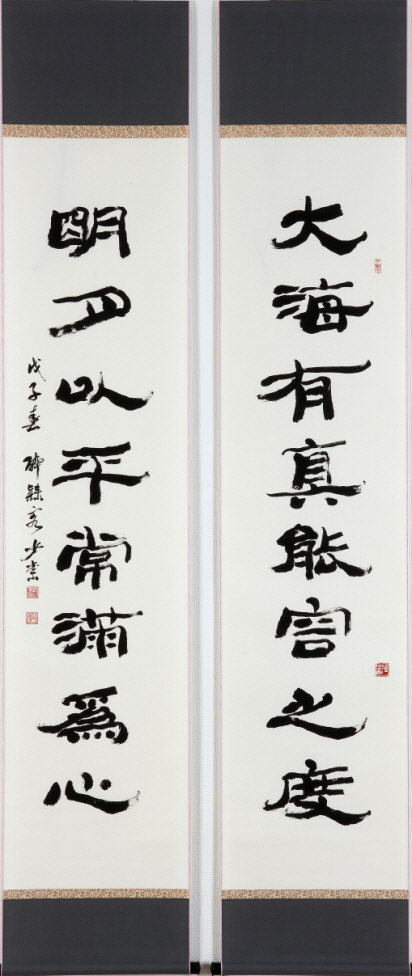 大海有真能容之度
明月以平常滿為心
戊子春